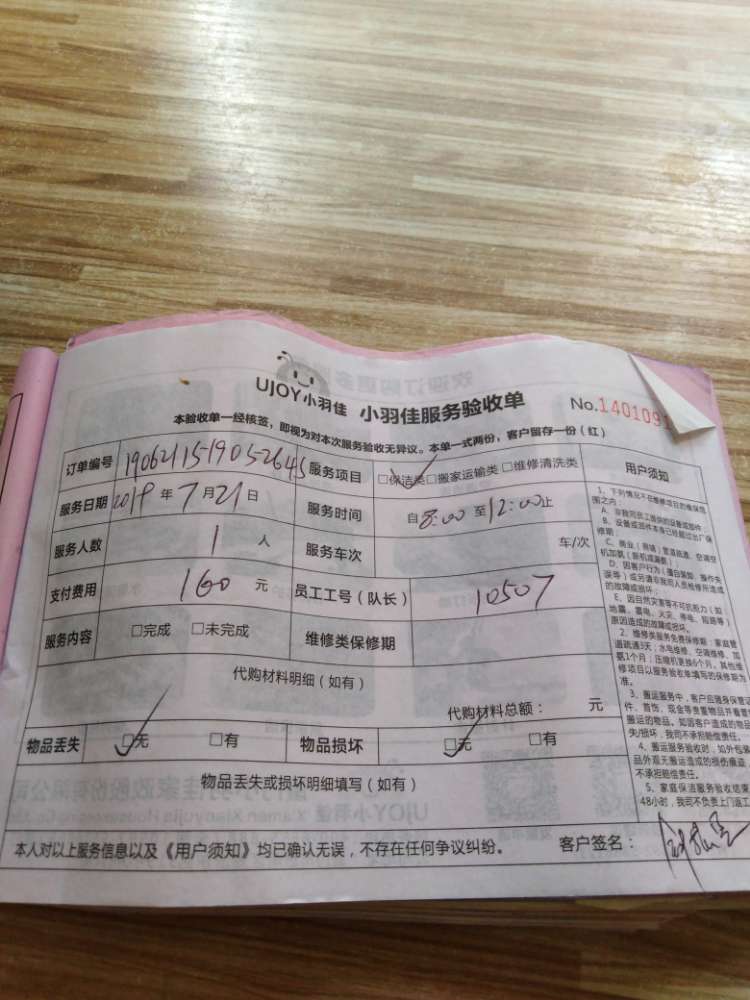 UJOY小羽佳 小羽佳服务验收单
No.140109
本验收单一经核签，即视为对本次服务验收无异议。本单一式两份，客户留存一份（红）
订单编号 190621151905264 服务项目 □保洁类□搬家运输类□维修清洗类
服务日期 2019年7月21日 服务时间 自8:00至12:00止
服务人数 1 人 服务车次 车/次
支付费用 160 元 员工工号（队长） 10507
服务内容 □完成 □未完成 维修类保修期
代购材料明细（如有）
代购材料总额： 元
物品丢失 □无 □有 物品损坏 □无 □有
物品丢失或损坏明细填写（如有）
本人对以上服务信息以及《用户须知》均已确认无误，不存在任何争议纠纷。 客户签名：
用户须知
1、下列情况不在维修项目的维保范
围之内：
A、非我司员工提供的设备或部件；
B、设备或部件本身已经超过出厂保
修期
C、商业（商铺）管道疏通、空调空
机加氨
D、因客户行为
的故障或损坏；
E、因自然灾害等不可抗力（如
地震、雷电、火灾、停电、短路等）
原因造成的故障或损坏。
2、维修类服务免费保修期：家庭管
道疏通3天；水电维修、空调维修、加
氨1个月；压缩机更换6个月，其他维
修项目以服务验收单填写的保修期为
准。
3、搬运服务中，客户应随身保管证
件、首饰、现金等贵重物品并看管
搬运的物品。如因客户造成的物品
失/损坏，我司不承担赔偿责任。
4、搬运服务验收时，如外包装
品外观无搬运造成的损伤痕迹
不承担赔偿责任。
5、家庭保洁服务验收结束
48小时，我司不负责上门返工